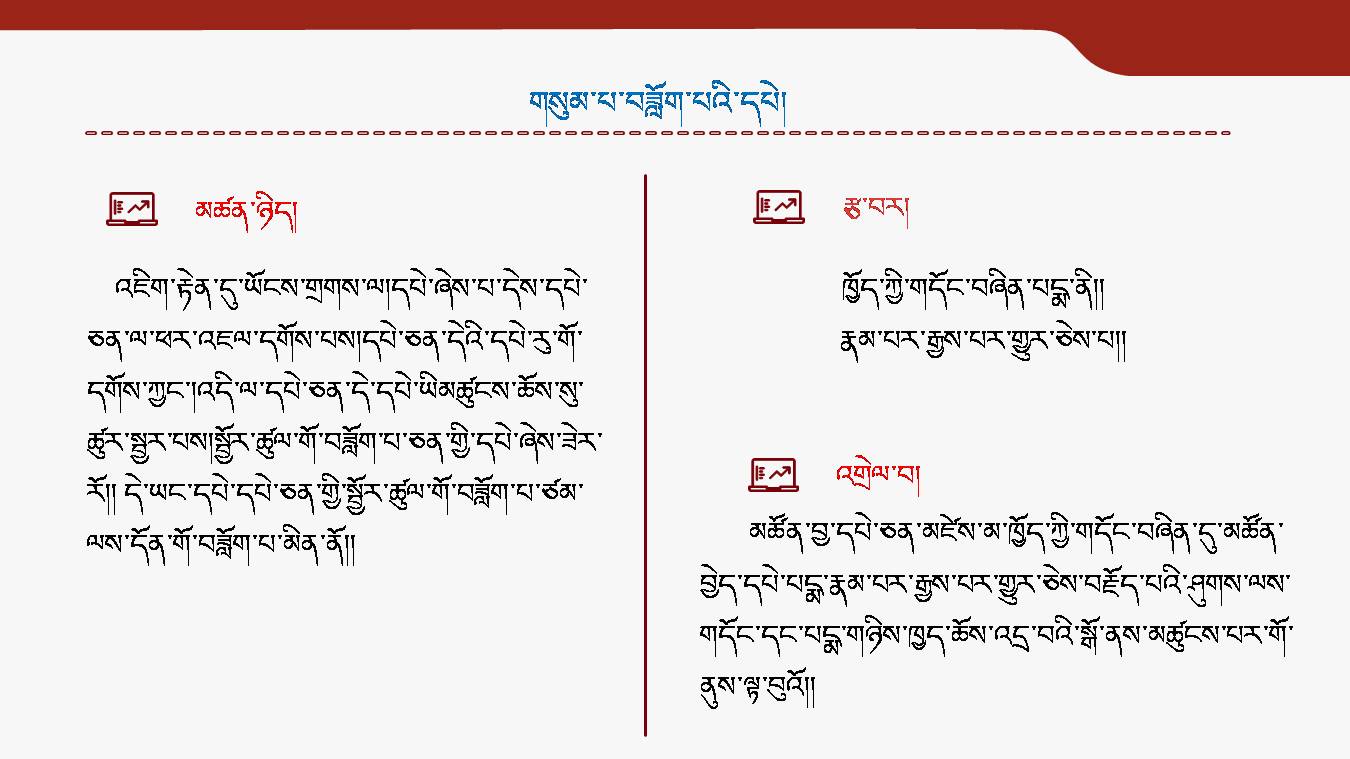 གསུམ་པ་བཟློག་པའི་དཔེ།
མཚན་ཉིད།
འཇིག་རྟེན་དུ་ཡོངས་གྲགས་ལ།དཔེ་ཞེས་པ་དེས་དཔེ་
ཅན་ལ་ཕར་འཇལ་དགོས་པས།དཔེ་ཅན་དེའི་དཔེ་རུ་གོ་
དགོས་ཀྱང་།འདི་ལ་དཔེ་ཅན་དེ་དཔེ་ཡིམཚུངས་ཆོས་སུ་
ཚུར་སྦྱར་པས།སྦྱོར་ཚུལ་གོ་བཟློག་པ་ཅན་གྱི་དཔེ་ཞེས་ཟེར་
རོ།། དེ་ཡང་དཔེ་དཔེ་ཅན་གྱི་སྦྱོར་ཚུལ་གོ་བཟློག་པ་ཙམ་
ལས་དོན་གོ་བཟློག་པ་མིན་ནོ།།
རྩ་བར།
ཁྱོད་ཀྱི་གདོང་བཞིན་པདྨ་ནི།།
རྣམ་པར་རྒྱས་པར་གྱུར་ཅེས་པ།།
འགྲེལ་བ།
མཚོན་བྱ་དཔེ་ཅན་མཛེས་མ་ཁྱོད་ཀྱི་གདོང་བཞིན་དུ་མཚོན་
བྱེད་དཔེ་པདྨ་རྣམ་པར་རྒྱས་པར་གྱུར་ཅེས་བརྗོད་པའི་ཤུགས་ལས་
གདོང་དང་པདྨ་གཉིས་ཁྱད་ཆོས་འདྲ་བའི་སྒོ་ནས་མཚུངས་པར་གོ་
ནུས་ལྟ་བུའོ།།